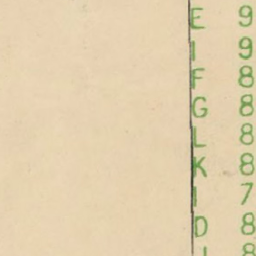 E 9
I 9
F 8
G 8
L 8
K 8
I 7
D 8
J 8